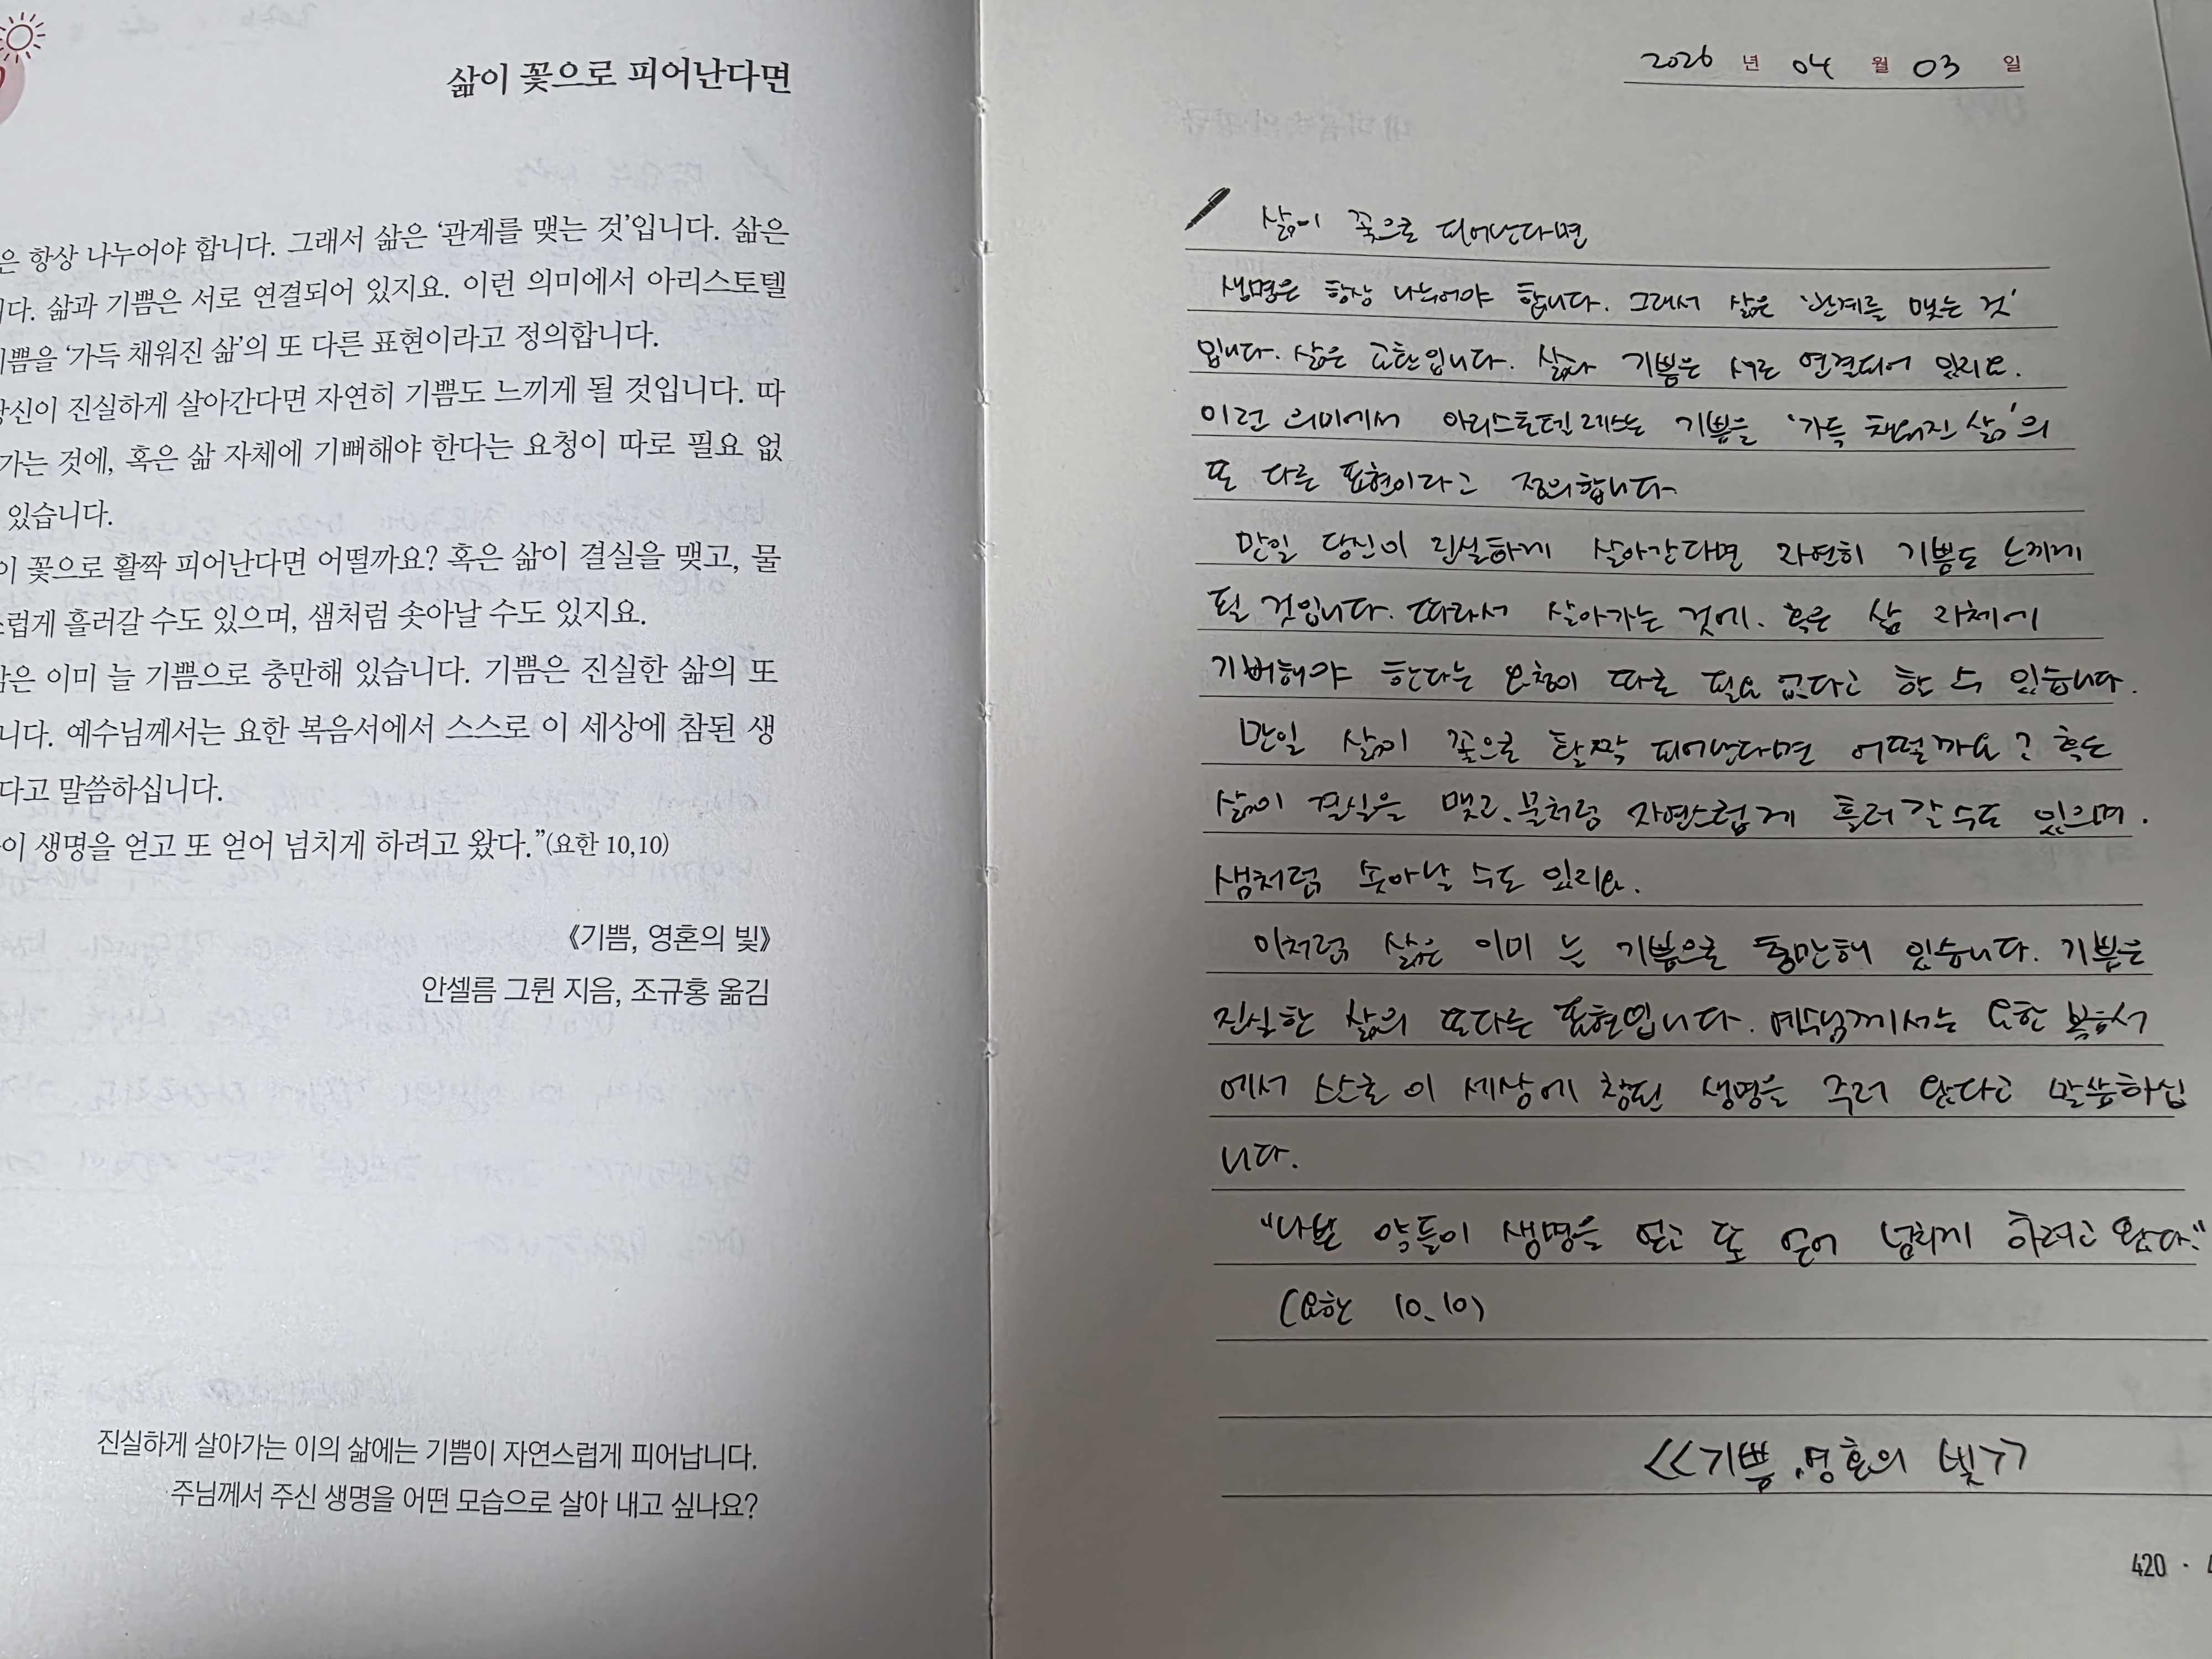 삶이 꽃으로 피어난다면
은 항상 나누어야 합니다. 그래서 삶은 ‘관계를 맺는 것’입니다. 삶은
니다. 삶과 기쁨은 서로 연결되어 있지요. 이런 의미에서 아리스토텔
기쁨을 ‘가득 채워진 삶’의 또 다른 표현이라고 정의합니다.
당신이 진실하게 살아간다면 자연히 기쁨도 느끼게 될 것입니다. 따
가는 것에, 혹은 삶 자체에 기뻐해야 한다는 요청이 따로 필요 없
있습니다.
이 꽃으로 활짝 피어난다면 어떨까요? 혹은 삶이 결실을 맺고, 물
스럽게 흘러갈 수도 있으며, 샘처럼 솟아날 수도 있지요.
삶은 이미 늘 기쁨으로 충만해 있습니다. 기쁨은 진실한 삶의 또
니다. 예수님께서는 요한 복음서에서 스스로 이 세상에 참된 생
다고 말씀하십니다.
이 생명을 얻고 또 얻어 넘치게 하려고 왔다.”(요한 10,10)
《기쁨, 영혼의 빛》
안셀름 그륀 지음, 조규홍 옮김
진실하게 살아가는 이의 삶에는 기쁨이 자연스럽게 피어납니다.
주님께서 주신 생명을 어떤 모습으로 살아 내고 싶나요?
2026 년 04 월 03 일
삶이 꽃으로 피어난다면
생명은 항상 나누어야 합니다. 그래서 삶은 ‘관계를 맺는 것’
입니다. 삶은 교환입니다. 삶과 기쁨은 서로 연결되어 있지요.
이런 의미에서 아리스토텔레스는 기쁨을 ‘가득 채워진 삶’의
또 다른 표현이라고 정의합니다.
만일 당신이 진실하게 살아간다면 자연히 기쁨도 느끼게
될 것입니다. 따라서 살아가는 것에, 혹은 삶 자체에
기뻐해야 한다는 요청이 따로 필요 없다고 할 수 있습니다.
만일 삶이 꽃으로 활짝 피어난다면 어떨까요? 혹은
삶이 결실을 맺고, 물처럼 자연스럽게 흘러갈 수도 있으며,
샘처럼 솟아날 수도 있지요.
이처럼 삶은 이미 늘 기쁨으로 충만해 있습니다. 기쁨은
진실한 삶의 또다른 표현입니다. 예수님께서는 요한 복음서
에서 스스로 이 세상에 참된 생명을 주러 왔다고 말씀하십
니다.
“나는 양들이 생명을 얻고 또 얻어 넘치게 하려고 왔다.”
(요한 10.10)
<<기쁨, 영혼의 빛>>
420 ·